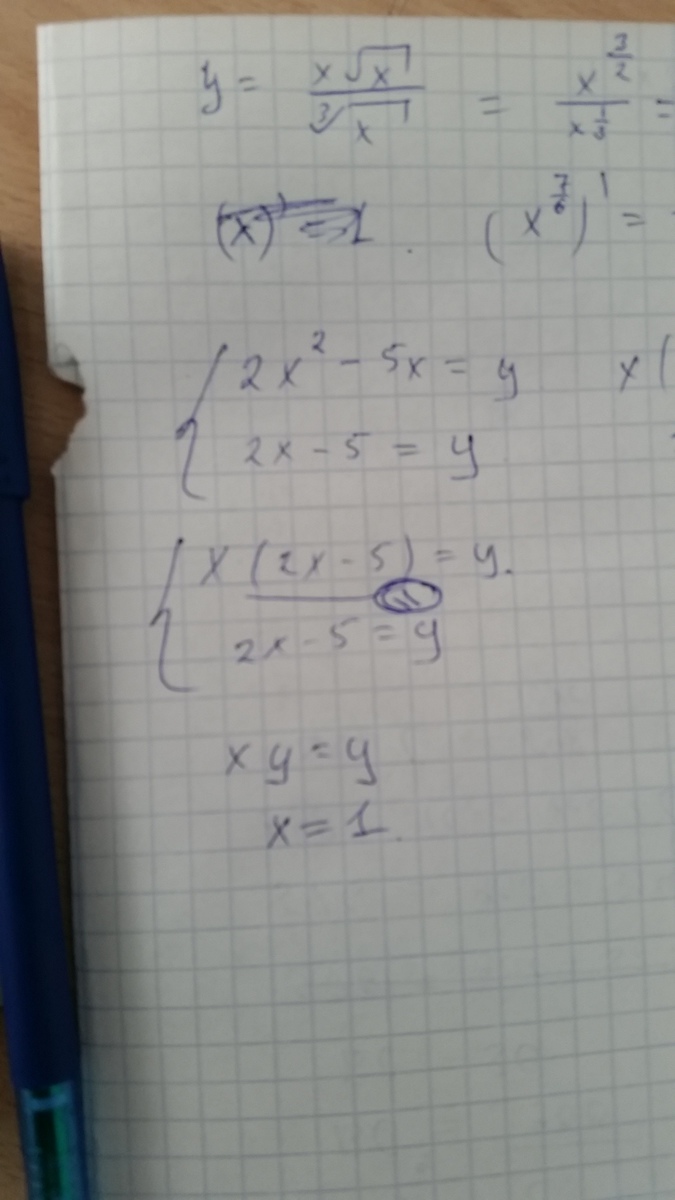 y = x√x / ∛x = x^(3/2) / x^(1/3) =
(x)' = 1 . (x^(7/6))' =
{ 2x² - 5x = y x (
2x - 5 = y
{ x (2x - 5) = y.
2x - 5 = y
xy = y
x = 1.